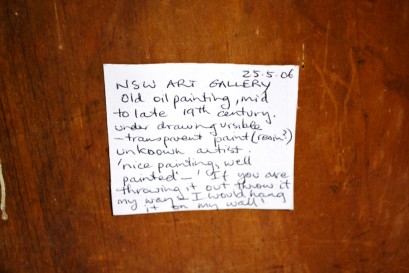 25.5.06
NSW ART GALLERY
Old oil painting, mid
to late 19th century.
under drawing visible
- transparent paint (resin?)
unknown artist.
'nice painting, well
painted' - 'If you are
throwing it out throw it
my way - I would hang
it on my wall'